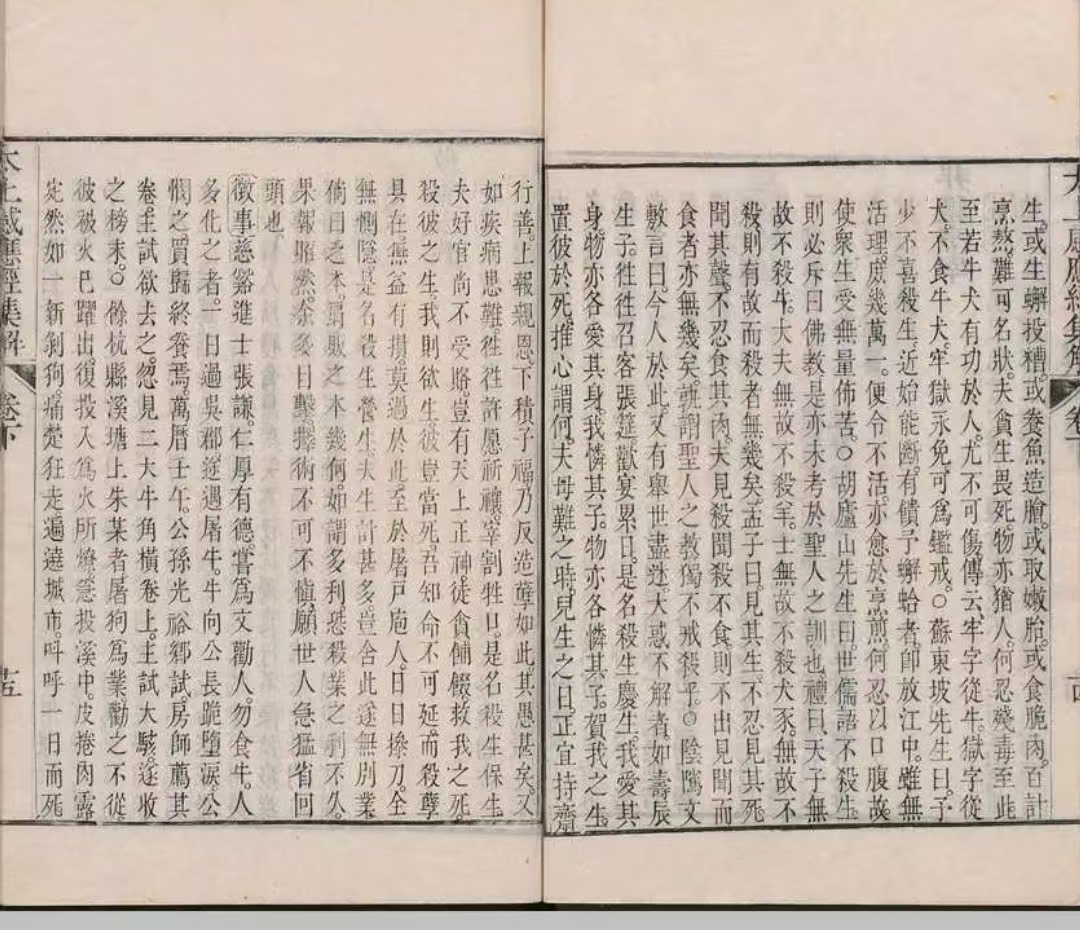 太上感應經集解 卷下
生。或生蠏投糟。或養魚造膾。或取嫩胎。或食脆肉。百計
烹熬。難可名狀。夫貪生畏死。物亦猶人。何忍殘毒至此
至若牛犬有功於人。尤不可傷。傳云。牢字從牛。獄字從
犬。不食牛犬。牢獄永免。可爲鑑戒。○蘇東坡先生曰。予
少不喜殺生。近始能斷。有饋予蠏蛤者。卽放江中。雖無
活理。庶幾萬一。便令不活。亦愈於烹煎。何忍以口腹故。
使衆生受無量怖苦。○胡廬山先生曰。世儒語不殺生。
則必斥曰佛教。是亦未考於聖人之訓也。禮曰。天子無
故不殺牛。大夫無故不殺羊。士無故不殺犬豕。無故不
殺。則有故而殺者無幾矣。孟子曰。見其生。不忍見其死
聞其聲。不忍食其肉。夫見殺聞殺不食。則不出見聞而
食者亦無幾矣。孰謂聖人之教獨不戒殺乎。○陰隲文
敷言曰。今人於此。又有舉世盡迷。大惑不解者。如壽辰
生子。徃徃召客張筵。歡宴累日。是名殺生慶生。我愛其
身。物亦各愛其身。我憐其子。物亦各憐其子。賀我之生。
置彼於死。推心謂何。夫母難之時。兒生之日。正宜持齋
行善。上報親恩。下積子福。乃反造孽如此。其愚甚矣。又
如疾病患難。徃徃許愿祈禳。宰割牲口。是名殺生保生。
夫好官尚不受賂。豈有天上正神。徒貪餔餟。救我之死。
殺彼之生。我則欲生。彼豈當死。吾知命不可延。而殺孽
具在。無益有損。莫過於此。至於屠戶庖人。日日操刀。全
無惻隱。是名殺生營生。夫生計甚多。豈舍此遂無別業
倘曰乏本。屠販之本幾何。如謂多利。恐殺業之利不久。
果報昭然。余多目擊。擇術不可不愼。願世人急猛省回
頭也。
徵事 慈谿進士張謙。仁厚有德。嘗爲文勸人。勿食牛。人
多化之者。一日過吳郡。途遇屠牛。牛向公長跪墮淚。公
憫之。買歸終養焉。萬曆壬午。公孫光裕鄉試。房師薦其
卷。主試欲去之。忽見二大牛角橫卷上。主試大駭。遂收
之榜末。○餘杭縣溪塘上朱某者。屠狗爲業。勸之不從。
彼被火。已躍出。復投入爲火所燎。急投溪中。皮捲肉露
宛然如一新剝狗。痛楚狂走。遍遶城市。呌呼一日而死
太上感應經集解 卷下